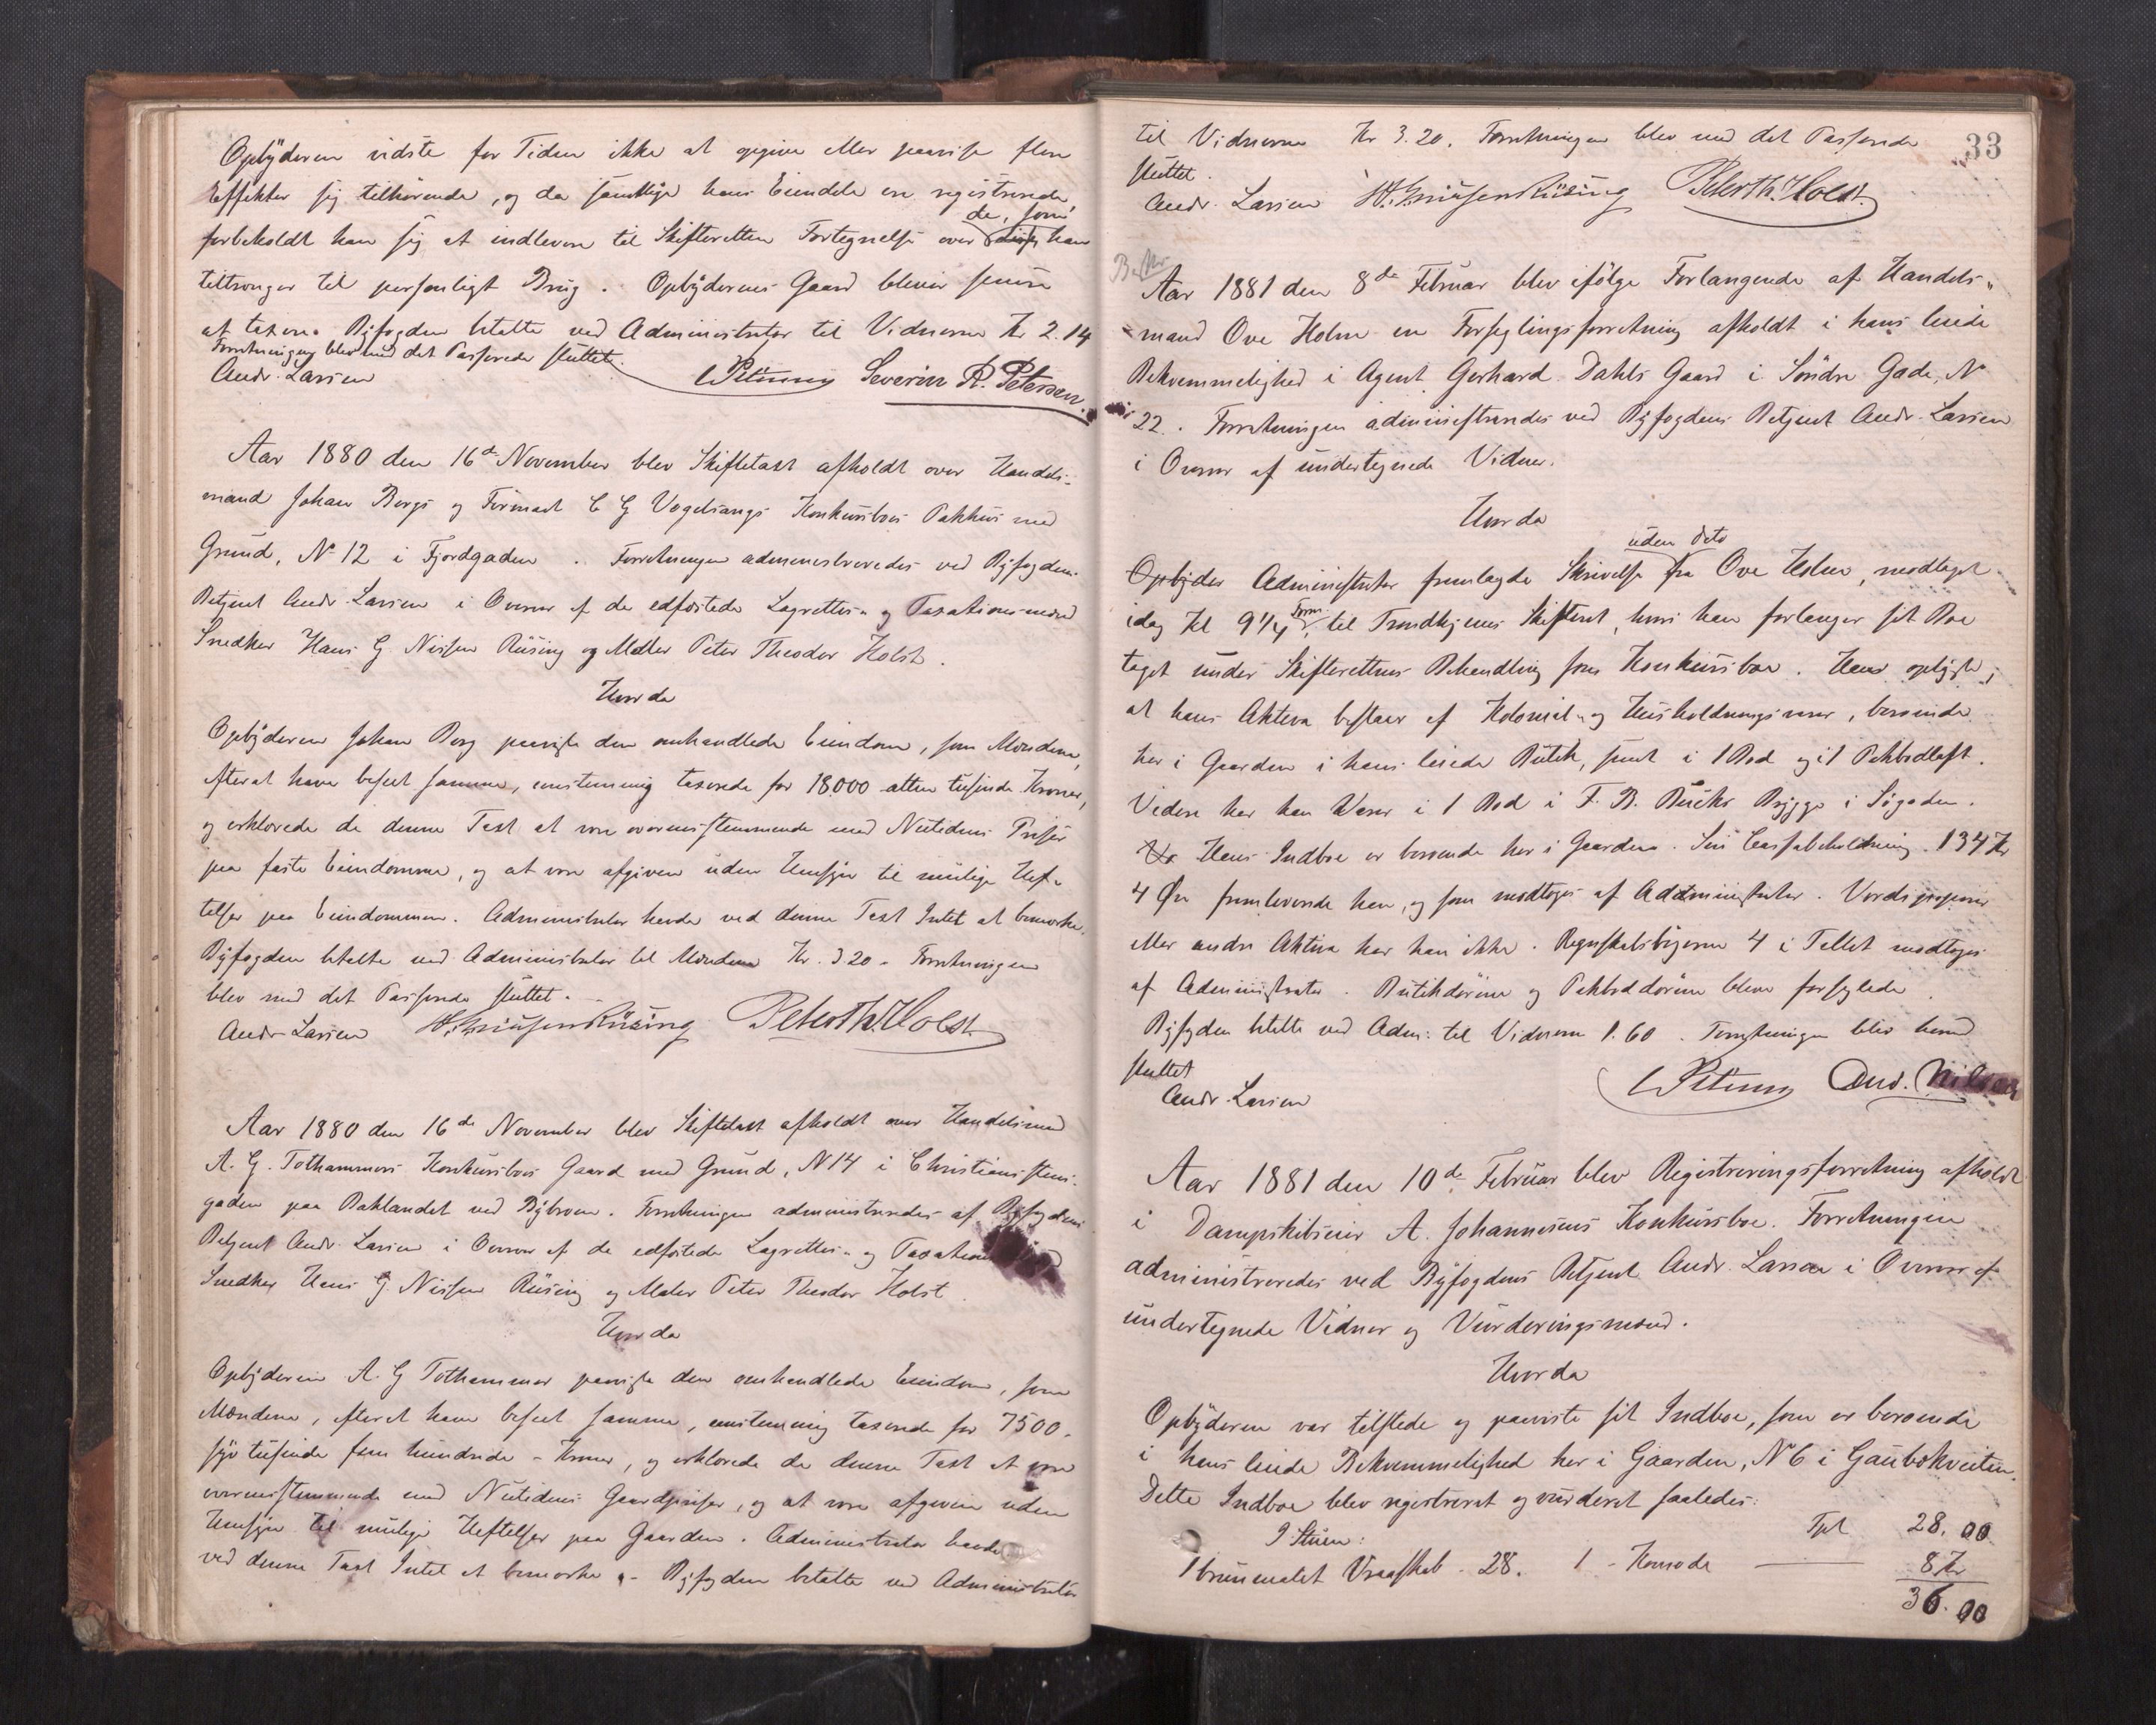 Opbÿderen vidste for Tiden ikke at opgive eller paavise flere
Effekter sig tilhørende, og da samtlige hans Eiendele ere registrerede,
forbeholdt han sig at indlevere til Skifteretten Fortegnelse over de, som han
tiltrænger til personligt Brug. Opbÿderens Gaard bliver senere
at taxere. Bÿfogden betalte ved Administrator til Vidnerne Kr 2.14
Forretningen blev med det Passerede sluttet.
Andr. Larsen Severin R. Petersen.
Aar 1880 den 16de November blev Skiftetaxt afholdt over Handels-
mand Johan Bergs og Firmaet C G Vogelsangs Konkursboes Pakhus med
Grund, No 12 i Fjordgaden. Forretningen administreredes ved Bÿfogdens
Betjent Andr. Larsen i Overvær af de edfæstede Lagrettes- og Taxationsmænd
Snedker Hans G. Nissen Rüsing og Maler Peter Theodor Holst.
Hvorda
Opbÿderen Johan Berg paaviste den omhandlede Eiendom, som Mændene,
efterat have beseet samme, enstemmig taxerede for 18000 atten tusinde Kroner,
og erklærede de denne Taxt at være overensstemmende med Nutidens Priser
paa faste Eiendomme, og at være afgiven uden Hensÿn til mulige Hef-
telser paa Eiendommen. Administrator havde ved denne Taxt Intet at bemærke.
Bÿfogden betalte ved Administrator til Mændene Kr. 3 20. Forretningen
blev med det Passerede sluttet.
Andr Larsen H. G. Nissen Rüsing Peter Th. Holst.
Aar 1880 den 16de November blev Skiftetaxt afholdt over Handelsmand
A. G. Tothammers Konkursboes Gaard med Grund, N 14 i Christiansstens-
gaden paa Baklandet ved Bÿbroen. Forretningen administreredes af Bÿfogdens
Betjent Andr. Larsen i Overvær af de edfæstede Lagrettes- og Taxations
Snedker Hans G. Nissen Rüsing og Maler Peter Theodor Holst.
Hvorda
Opbÿderen A. G Tothammer paaviste den omhandlede Eiendom, som
Mændene, efterat have beseet samme, enstemmig taxerede for 7500-
sÿv tusinde fem hundrede - Kroner, og erklærede de denne Taxt at være
overensstemmende med Nutidens Gaardpriser, og at være afgiven uden
Hensÿn til mulige Heftelser paa Gaarden. Administrator havde
ved denne Taxt Intet at bemærke. - Bÿfogden betalte ved Administrator
33
til Vidnerne Kr 3.20. Forretningen blev med det Passerede
sluttet.
Andr. Larsen H. G. Nissen Rüsing Peter Th. Holst.
Aar 1881 den 8de Februar blev ifølge Forlangende af Handels-
mand Ove Holm en Forseglingsforretning afholdt i hans leiede
Bekvemmelighed i Agent Gerhard Dahls Gaard i Søndre Gade, No
22. Forretningen administreredes ved Bÿfogdens Betjent Andr. Larsen
i Overvær af undertegnede Vidner.
Hvorda
uden dato
Opbÿder Administrator fremlagde Skrivelse fra Ove Holm, modtaget
idag Kl 9 1/4 Form. til Trondhjems Skifteret, hvori han forlanger sit Boe
taget under Skifterettens Behandling som Konkursboe. Han oplÿste,
at hans Aktiva bestaar af Kolonial- og Husholdningsvarer, beroende
her i Gaarden i hans leiede Butik, samt i 1 Bod og i 1 Pakbodloft.
Videre har han Varer i 1 Bod i F. B. Brÿgge i Søgaden.
Hans Indboe er beroende her i Gaarden. Sin Cassabeholdning 134 Kr
4 Øre fremleverede han, og som modtoges af Administrator. Værdipapirer
eller andre Aktiva har han ikke. Regnskabsbøgerne 4 i Tallet modtoges
af Administrator. Butikdørene og Pakboddørene bleve forseglede.
Bÿfogden betalte ved Adm: til Vidnerne 1.60. Forretningen blev hermed
sluttet
Andr. Larsen And. Nilsen
Aar 1881 den 10de Februar blev Registreringsforretning afholdt
i Dampskibseier A. Johannesens Konkursboe. Forretningen
administreredes ved Bÿfogdens Betjent Andr. Larsen i Overvær af
undertegnede Vidner og Vurderingsmænd.
Hvorda
Opbÿderen var tilstede og paaviste sit Indboe, som er beroende
i hans leiede Bekvemmelighed her i Gaarden, No 6 i Gaubækveiten.
Dette Indboe blev registreret og vurderet saaledes:
I Stuen:
1 brunmalet Vraaskab - 28. 1 - Komode 28.00
8 Kr
36.00